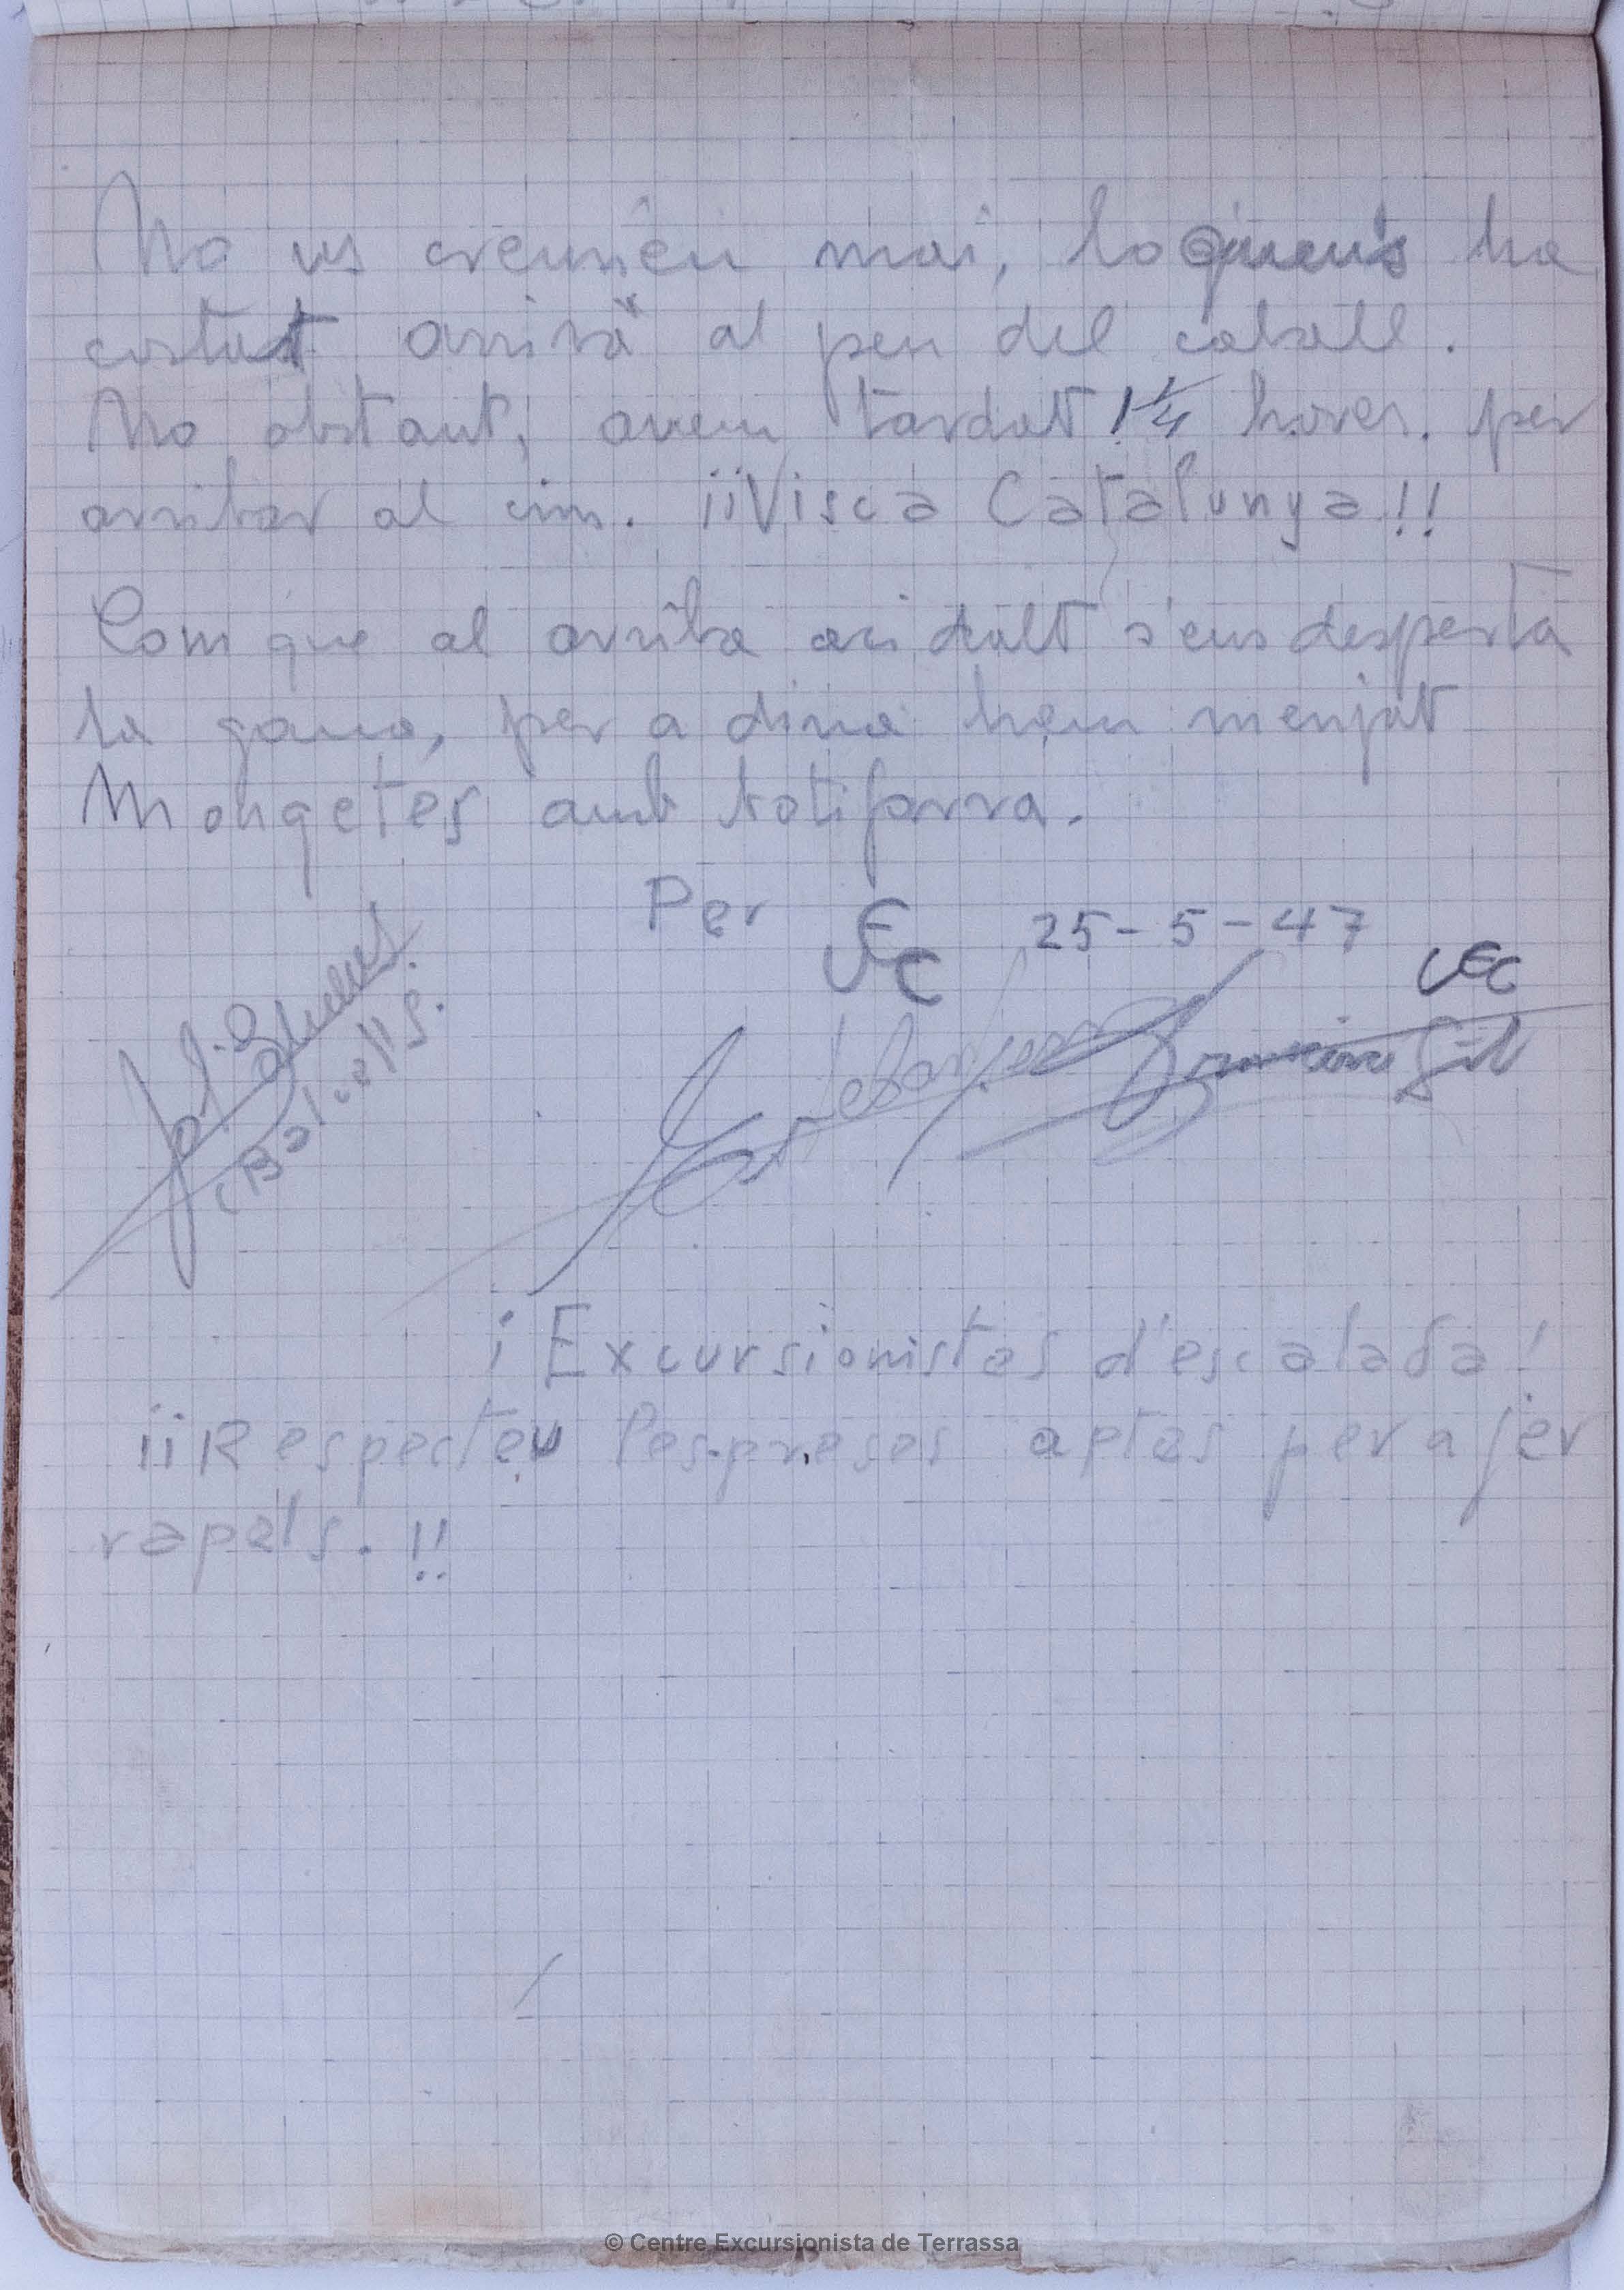 No us creurieu mai, lo que ens ha
costat arribá al peu del caball.
No obstant, avem tardat 1 1/4 hores. per
arribar al cim. ¡¡Visca Catalunya!!
Com que al arriba aci dalt s'ens desperta
la gana, per a dina hem menjat
Mongetes amb botifarra.
Per UEC 25-5-47
UEC
J.
Balcells.
Francisco Gil
¡Excursionistas d'escalada!
¡¡Respecteu les preses aptes per a fer
rapels.!!
© Centre Excursionista de Terrassa